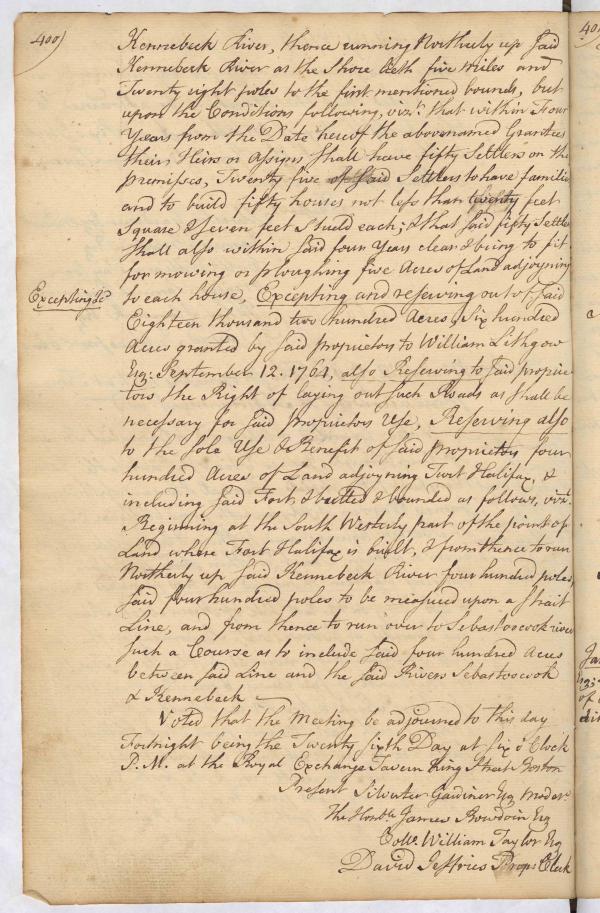 400)
Kennebeck River, thence running Northerly up said
Kennebeck River as the Shore lieth five miles and
Twenty eight poles to the first mentioned bounds, but
upon the Conditions following, vizt. that within Four
Years from the Date hereof the abovenamed Grantees
their Heirs or Assigns shall have fifty Settlers on the
premisses, Twenty five of said Settlers to have families
and to build fifty houses not less than twenty feet
Square & seven feet Studd each; & that said fifty Settlers
shall also within said four Years clear & bring to fit
for mowing or ploughing five Acres of Land adjoyning
Excepting &ca
to each house, Excepting and reserving out of said
Eighteen thousand two hundred Acres, Six hundred
Acres granted by said proprietors to William Lithgow
Esq: September 12. 1761, also Reserving to said proprie-
tors the Right of laying out such Roads as shall be
necessary for said proprietors Use, Reserving also
to the sole Use & Benefit of said proprietors four
hundred Acres of Land adjoyning Fort Halifax, &
including said Fort, & butted & bounded as follows, vizt.
Beginning at the South Westerly part of the point of
Land where Fort Halifax is built, & from thence to run
Northerly up said Kennebeck River four hundred poles,
said four hundred poles to be measured upon a strait
Line, and from thence to run over to Sebastoocook river
such a Course as to include said four hundred Acres
between said Line and the said Rivers Sebastoocook
& Kennebeck
Voted that the Meeting be adjourned to this day
Fortnight being the Twenty sixth Day at six o'Clock
P.M. at the Royal Exchange Tavern King Street Boston
Present Silvester Gardiner Esq Modr.
The Honble. James Bowdoin Esq
Collo. William Taylor Esq
David Jeffries Props Clerk